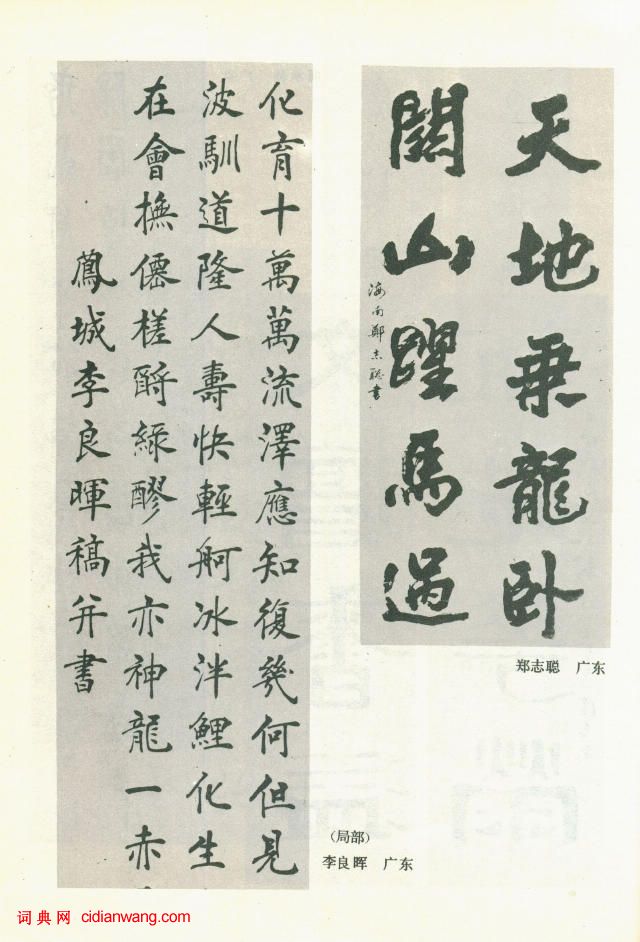 天地乘龍卧
關山躍馬過
海南鄭志聰書
郑志聪 广东
化育十萬萬流澤應知復幾何但見
波馴道隆人壽快輕舸冰泮鯉化生
在會撫僊槎酹綠醪我亦神龍一赤
鳳城李良暉稿并書
(局部)
李良晖 广东
词典网 cidianwang.com